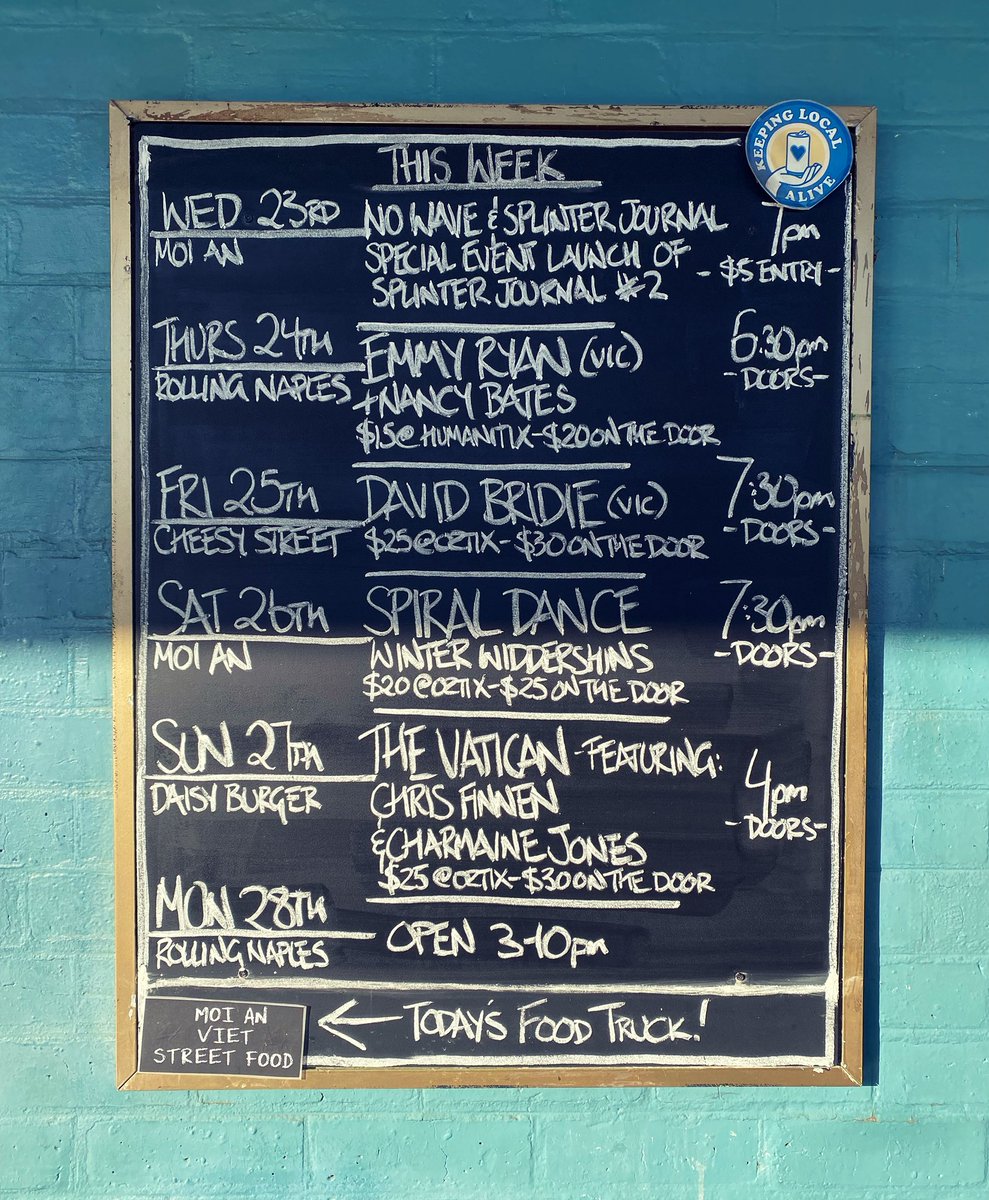 KEEPING LOCAL ALIVE
THIS WEEK
WED 23RD
MOI AN
NO WAVE & SPLINTER JOURNAL
SPECIAL EVENT LAUNCH OF
SPLINTER JOURNAL #2
7pm
- $5 ENTRY -
THURS 24TH
ROLLING NAPLES
EMMY RYAN (VIC)
+ NANCY BATES
$15 @ HUMANITIX - $20 ON THE DOOR
6.30pm
- DOORS -
FRI 25TH
CHEESY STREET
DAVID BRIDIE (VIC)
$25 @ OZTIX - $30 ON THE DOOR
7:30pm
- DOORS -
SAT 26TH
MOI AN
SPIRAL DANCE
WINTER WIDDERSHINS
$20 @ OZTIX - $25 ON THE DOOR
7:30pm
- DOORS -
SUN 27TH
DAISY BURGER
THE VATICAN - FEATURING:
CHRIS FINNEN
& CHARMAINE JONES
$25 @ OZTIX - $30 ON THE DOOR
4pm
- DOORS -
MON 28TH
ROLLING NAPLES
OPEN 3-10pm
MOI AN
VIET
STREET FOOD
← TODAY'S FOOD TRUCK!